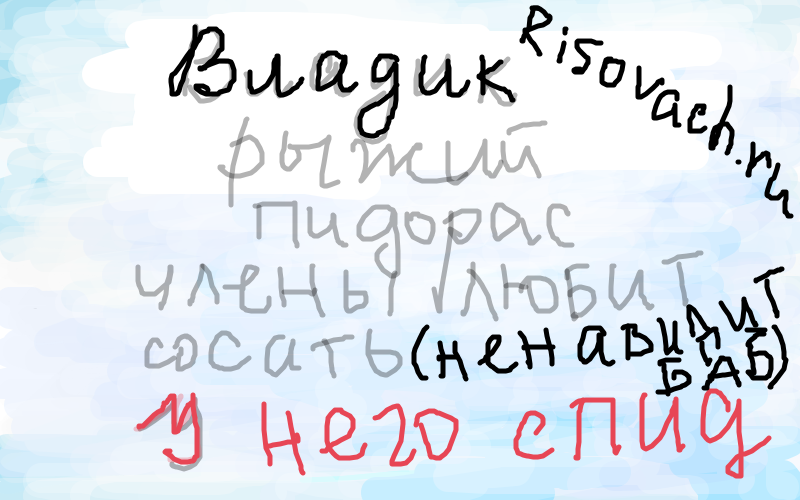 Владик
Risovach.ru
рыжий
пидорас
члены любит
сосать (ненавидит
БАБ)
У него спид